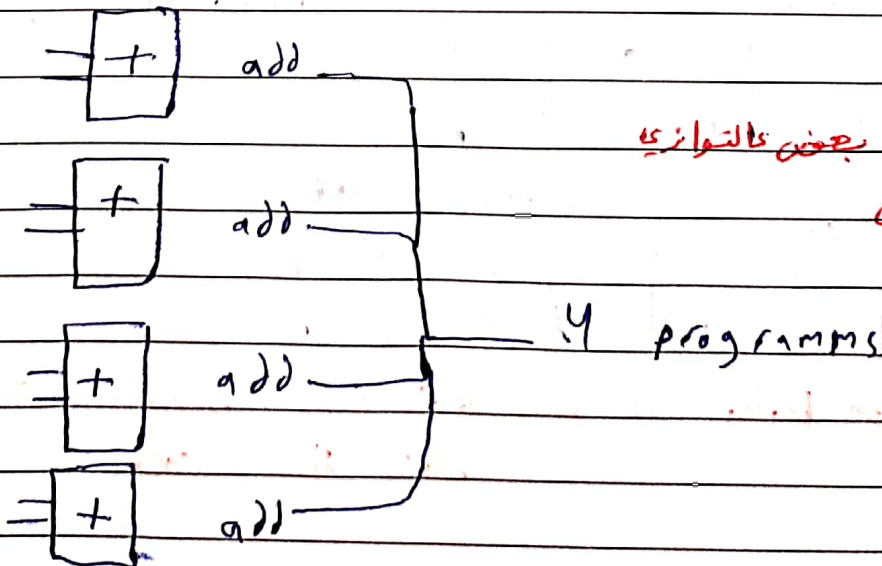 + add
بعض عالتوازي
+ add
4 programms
+ add
+ add